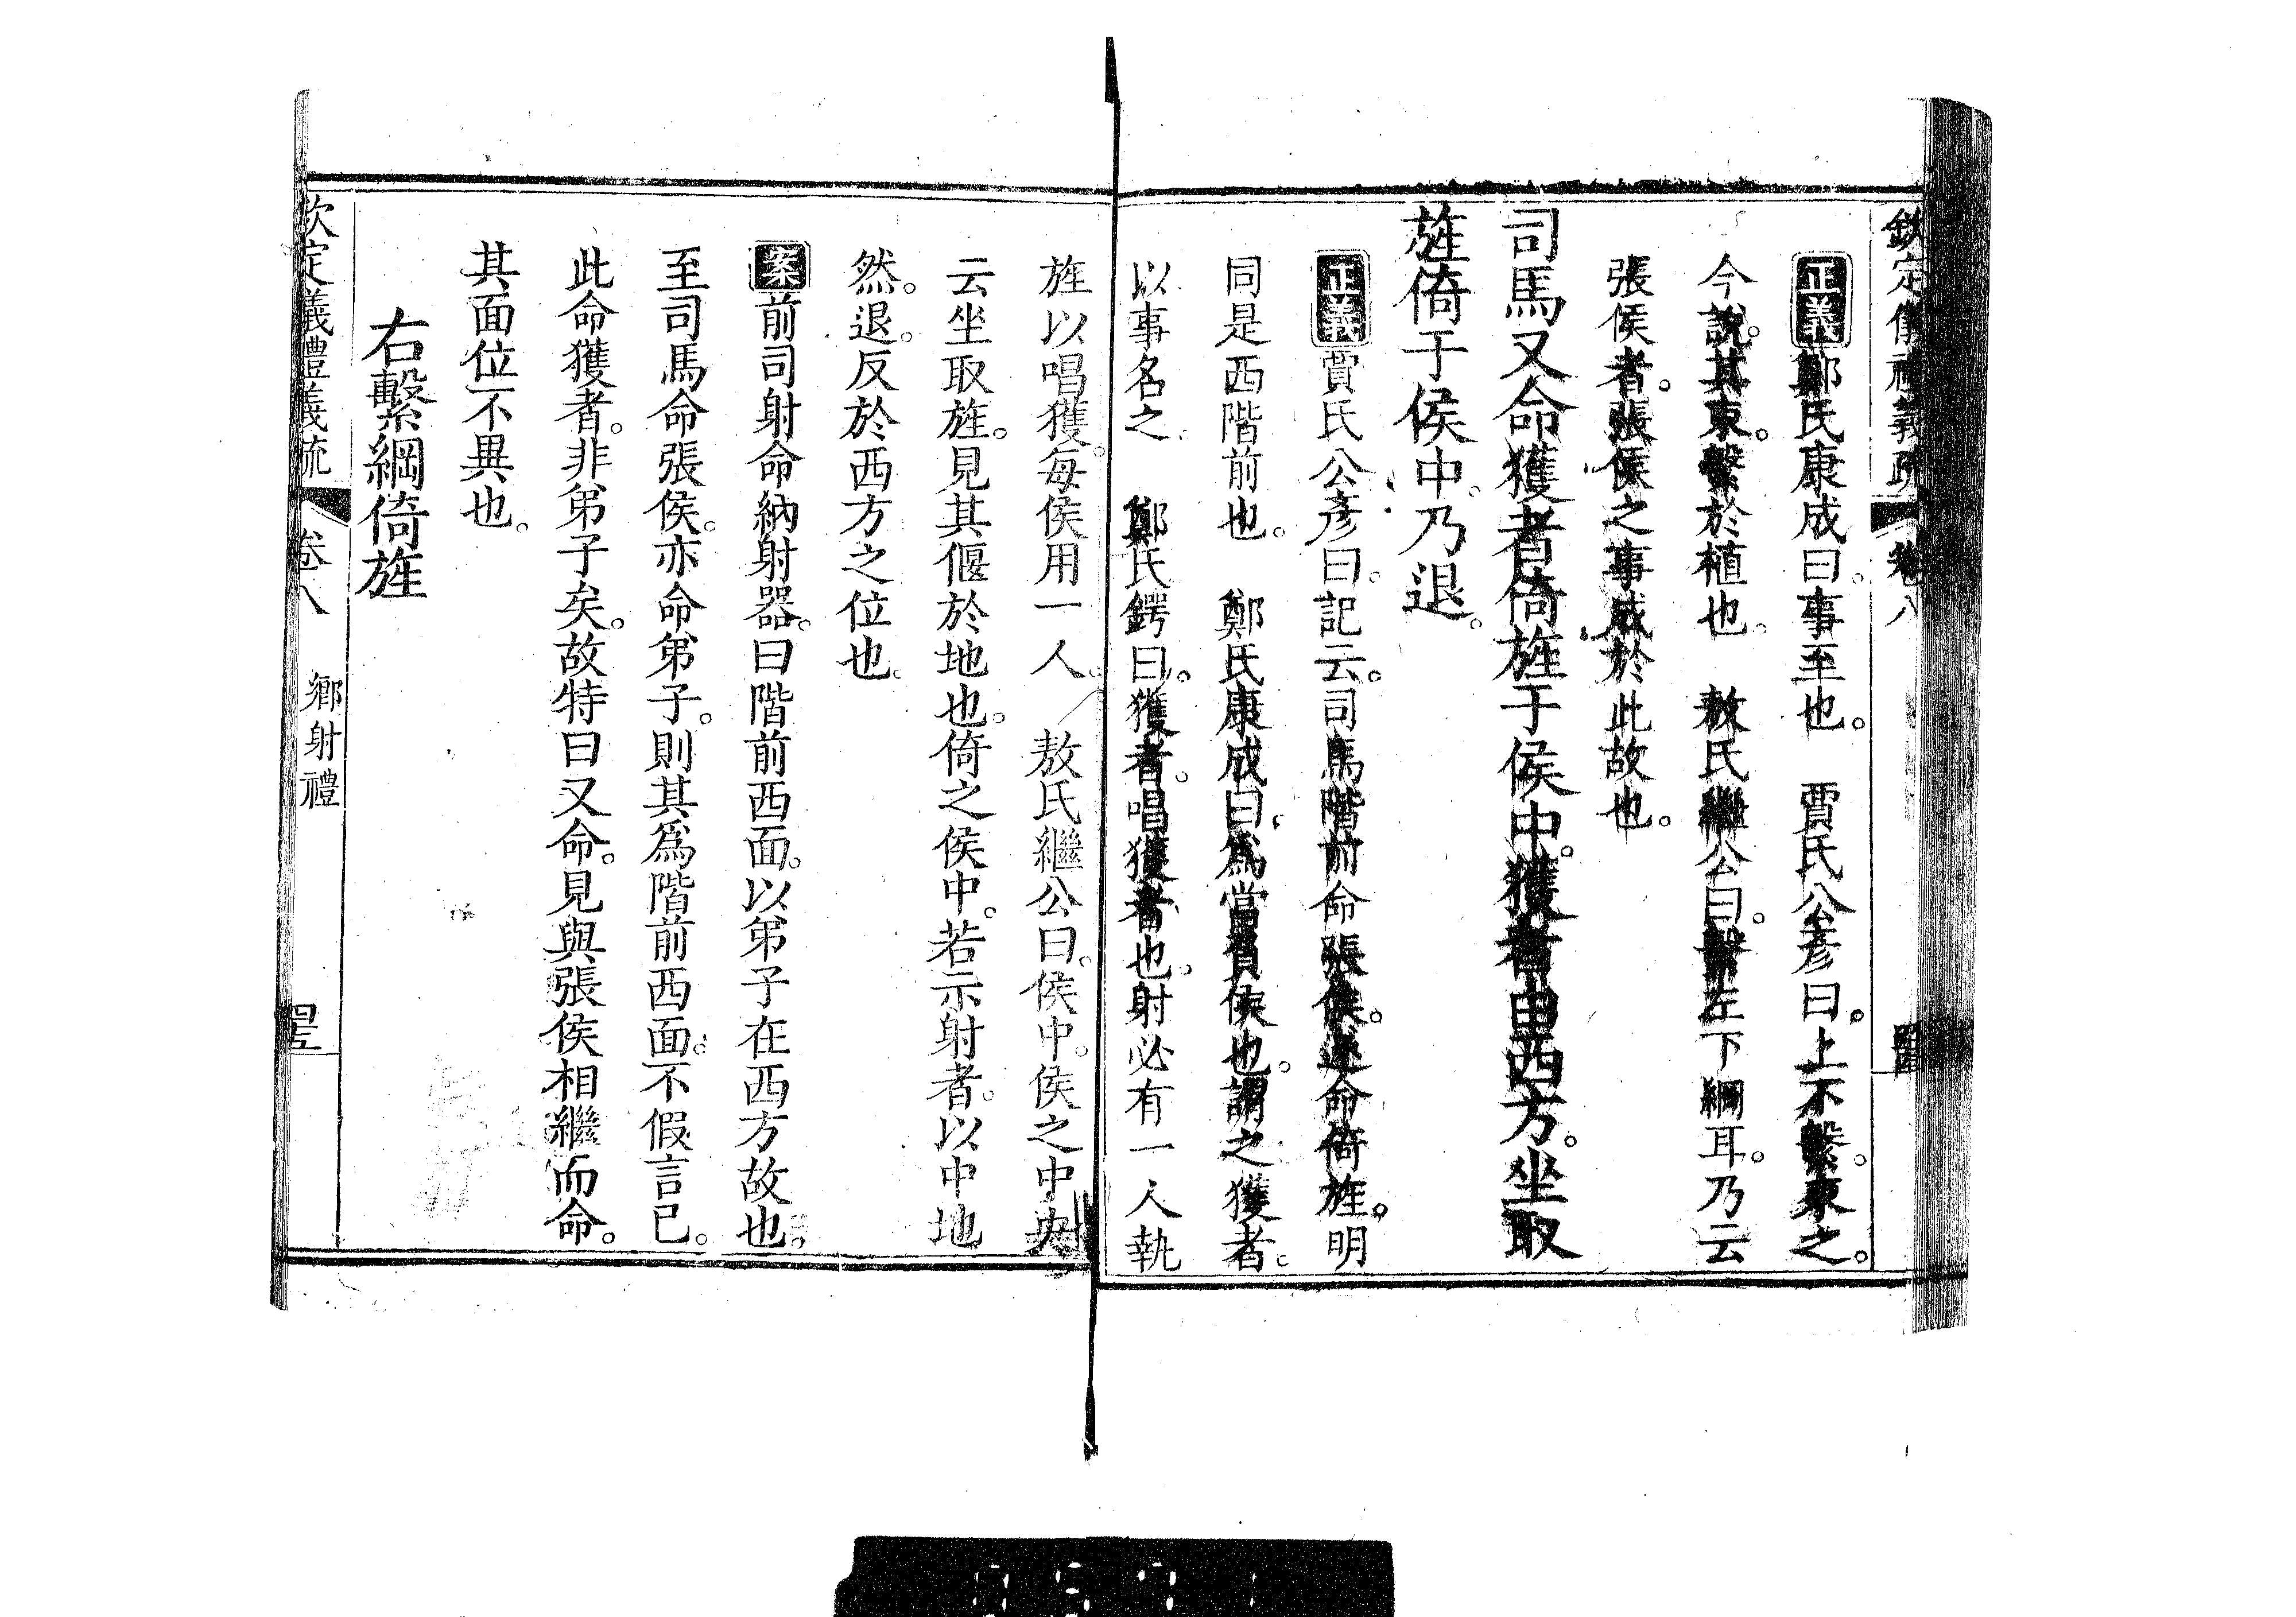 欽定儀禮義疏 卷八
正義鄭氏康成曰。事至也 賈氏公彥曰。上不繫。束之。
今說。其束。繫於植也。 敖氏繼公曰。繫左下綱耳。乃云
張侯者。張侯之事成於此故也。
司馬又命獲者倚旌于侯中。獲者由西方。坐取
旌倚于侯中。乃退。
正義賈氏公彥曰。記云。司馬階前命張侯。遂命倚旌。明
同是西階前也。 鄭氏康成曰。爲當負侯也。謂之獲者。
以事名之 鄭氏鍔曰。獲者。唱獲者也。射必有一人執
旌以唱獲。每侯用一人。 敖氏繼公曰。侯中。侯之中央
云坐取旌。見其偃於地也。倚之侯中。若示射者。以中地
然。退。反於西方之位也。
案前司射命納射器。曰階前西面。以弟子在西方故也。
至司馬命張侯。亦命弟子。則其爲階前西面。不假言已。
此命獲者。非弟子矣。故特曰又命。見與張侯相繼而命。
其面位不異也。
右繫綱倚旌
欽定儀禮義疏 卷八 鄉射禮